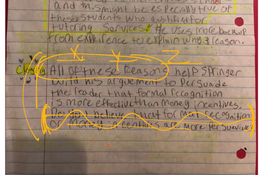 and this must be especially true of
these students who qualify for
tutoring services. He uses more backup
from experience to explain why & reason.
All of these reasons help Springer
build his arguement to Persuade
the reader that formal recognition
is more effective than money incentives.
believe that for most recognition
or money incentives are more Persuasive